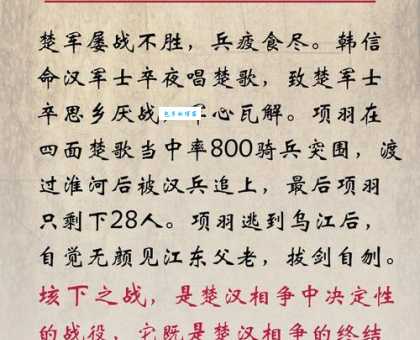 楚军屡战不胜，兵疲食尽。韩信
命汉军士卒夜唱楚歌，致楚军士
卒思乡厌战，军心瓦解。项羽在
四面楚歌当中率800骑兵突围，渡
过淮河后被汉兵追上，最后项羽
只剩下28人。项羽逃到乌江后，
自觉无颜见江东父老，拔剑自刎。
垓下之战，是楚汉相争中决定性
的战役，它既是楚汉相争的终结